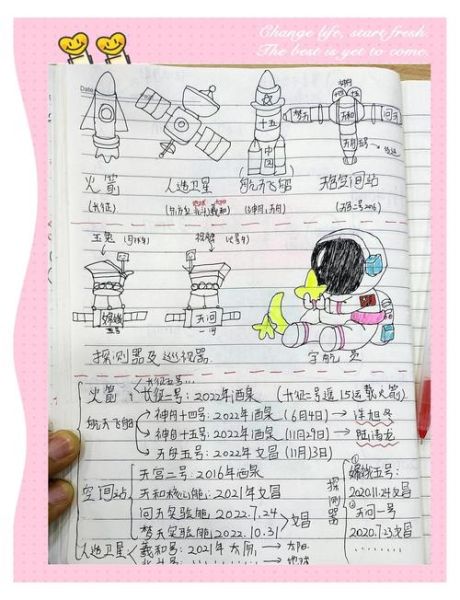 Change life, start fresh.
The best is yet to come.
Date
十五
中国
梦天 天和 问天
天舟
火箭 人造卫星 航天飞船 天宫空间站
(长征) (神舟, 天舟) (天宫二号2016)
玉兔 祝融
嫦娥五号 天问一号
探测器及巡视器 宇航员
长征五号…
火箭:长征二号:2022年酒泉(长征二号遥15运载火箭)
神舟十四号:2022年酒泉(6月4日)→陈旭冬
航天飞船 神舟十五号:2022年酒泉(11月29日)→陆清龙
天舟五号:2022年文昌(11月3日)
天宫二号:2016年酒泉
空间站 天和核心舱:2021年文昌
问天实验舱2022.7.24
梦天实验舱2022.10.31 文昌
人造卫星 羲和号:2021年太原→太阳
地球
探测器
①
嫦娥五号:
2020.11.24文昌
②
天问一号
2020.7.23文昌